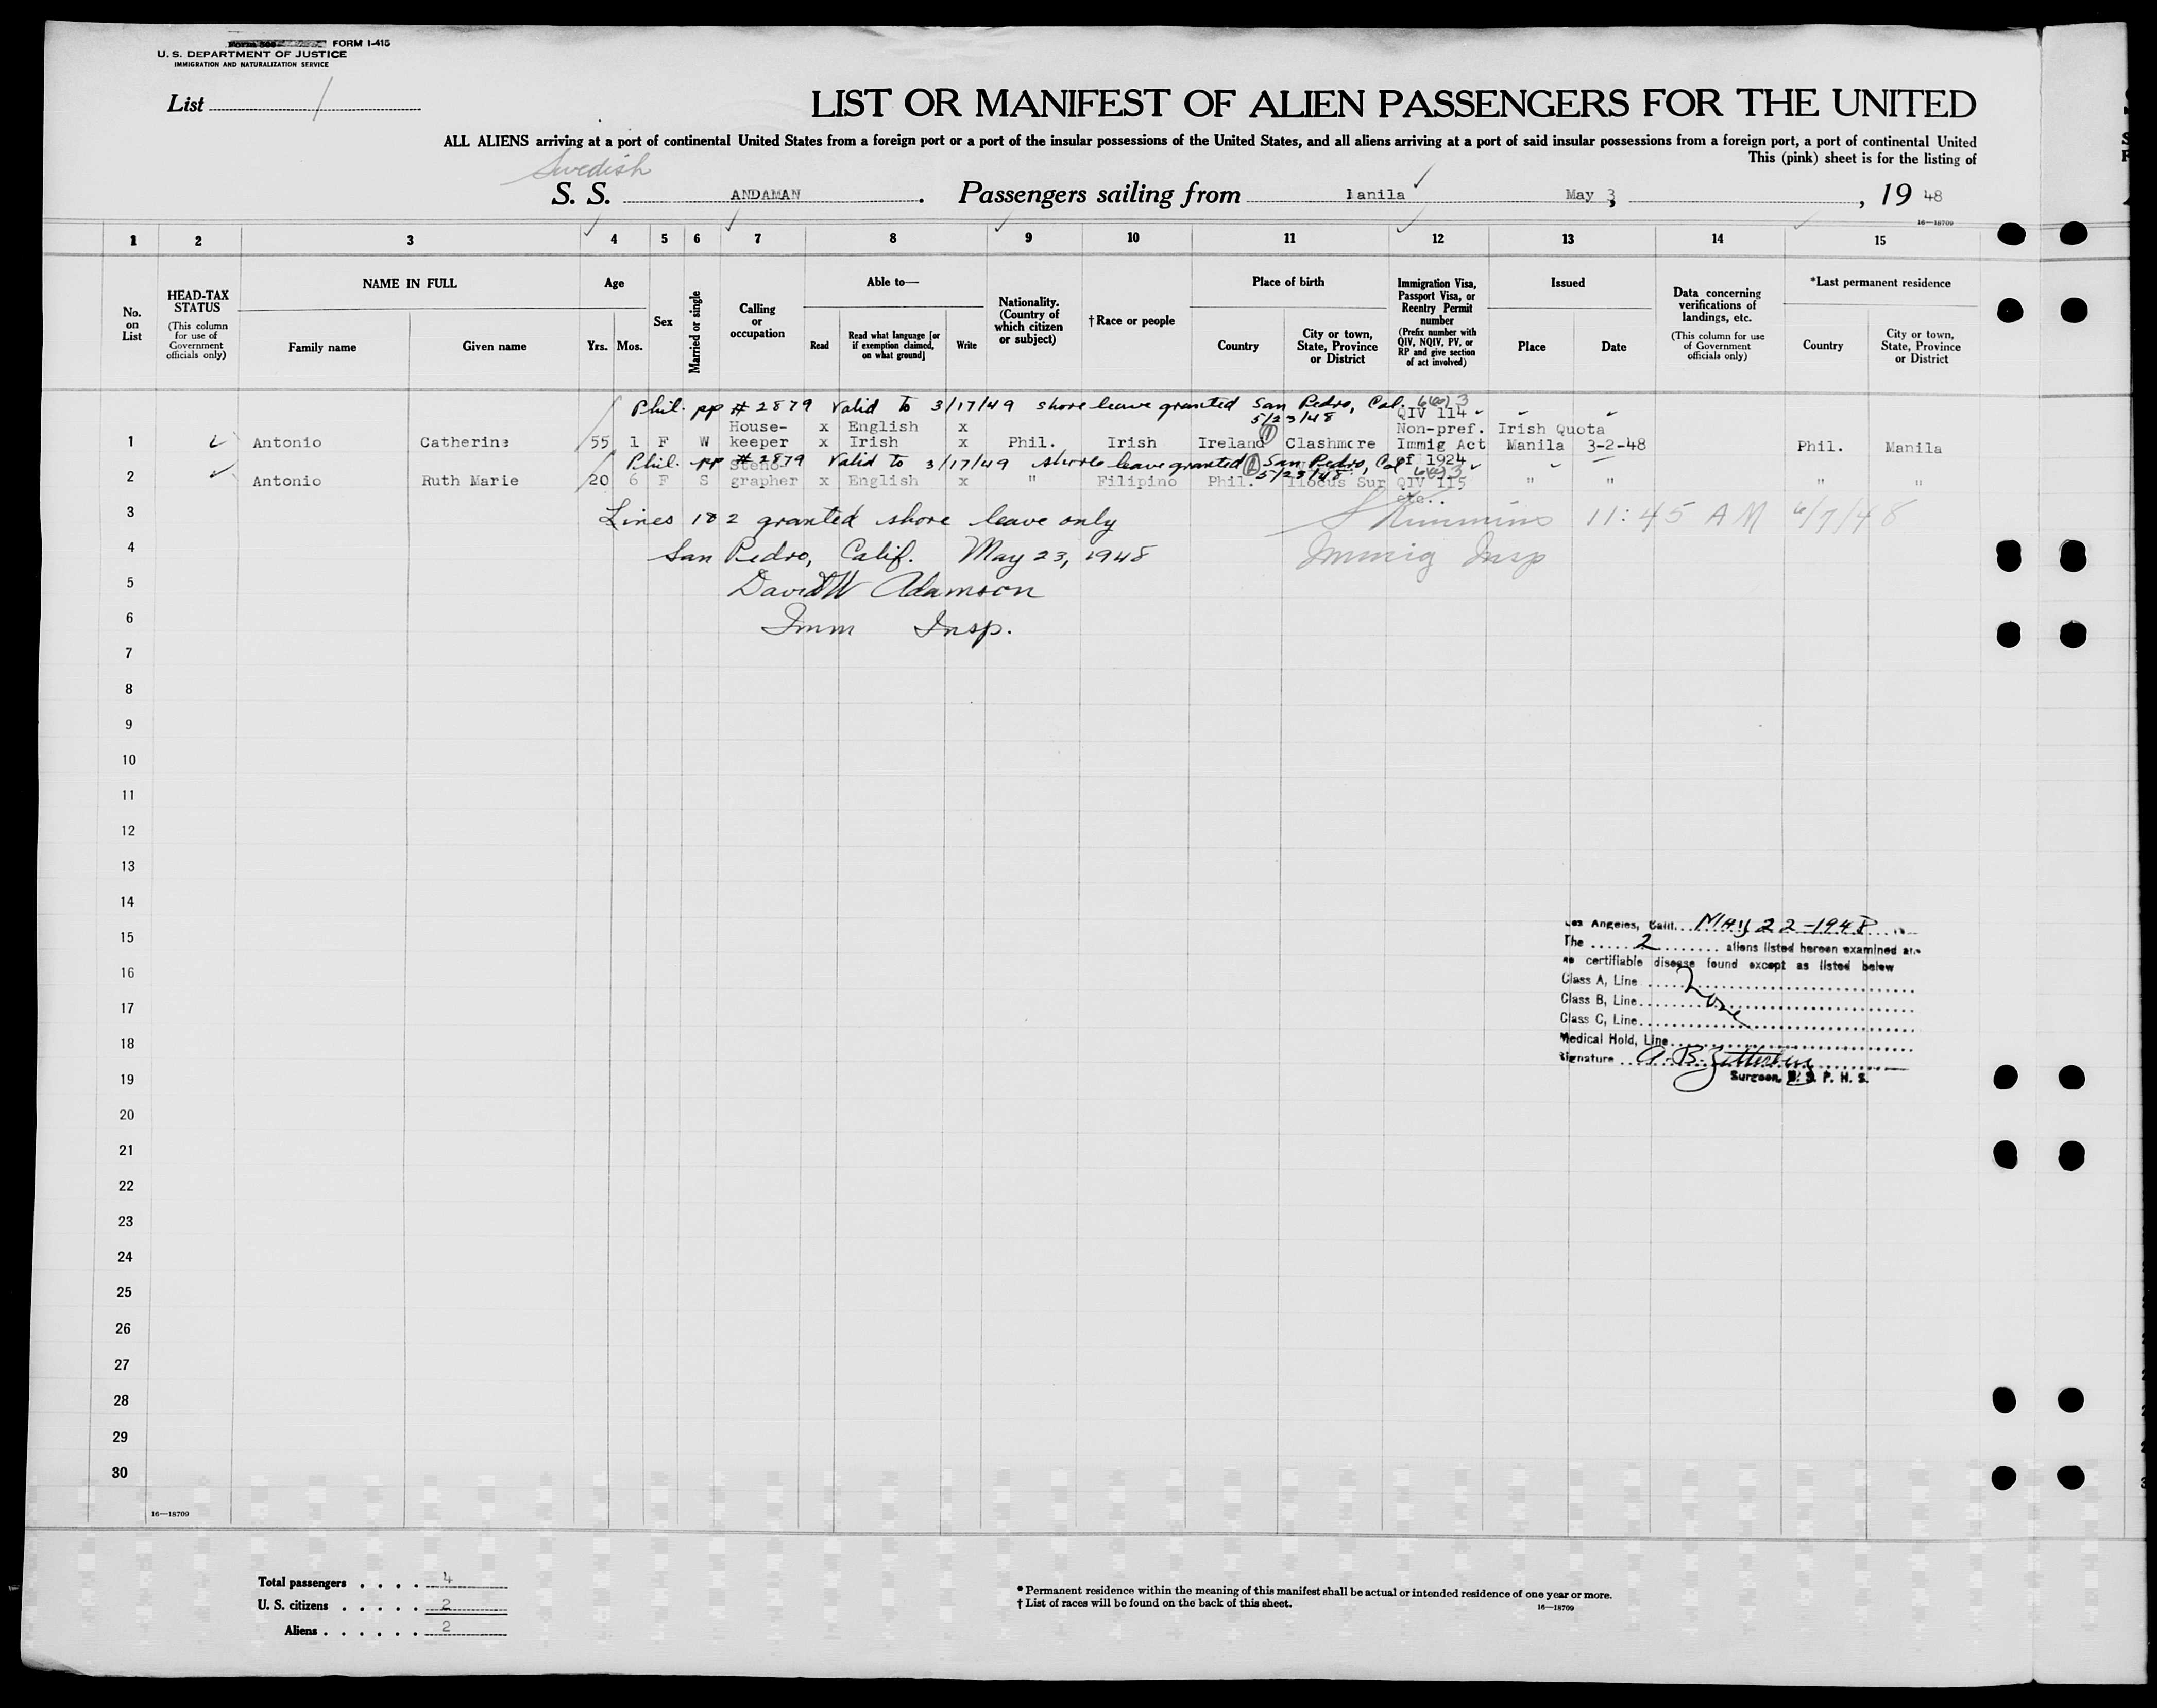 FORM I-415
U. S. DEPARTMENT OF JUSTICE
IMMIGRATION AND NATURALIZATION SERVICE
List 1
LIST OR MANIFEST OF ALIEN PASSENGERS FOR THE UNITED
ALL ALIENS arriving at a port of continental United States from a foreign port or a port of the insular possessions of the United States, and all aliens arriving at a port of said insular possessions from a foreign port, a port of continental United
This (pink) sheet is for the listing of
Swedish
S. S. ANDAMAN. Passengers sailing from Manila May 3, 19 48
16—18709
1 2 3 4 5 6 7 8 9 10 11 12 13 14 15
No. on List
HEAD-TAX STATUS (This column for use of Government officials only)
NAME IN FULL
Family name
Given name
Age
Yrs. Mos.
Sex
Married or single
Calling or occupation
Able to—
Read
Read what language [or if exemption claimed, on what ground]
Write
Nationality. (Country of which citizen or subject)
†Race or people
Place of birth
Country
City or town, State, Province or District
Immigration Visa, Passport Visa, or Reentry Permit number (Prefix number with QIV, NQIV, PV, or RP and give section of act involved)
Issued
Place
Date
Data concerning verifications of landings, etc. (This column for use of Government officials only)
*Last permanent residence
Country
City or town, State, Province or District
Phil. pp # 2879 Valid to 3/17/49 shore leave granted San Pedro, Cal. 6(a)3
5/23/48 QIV 114
House- x English x Non-pref. Irish Quota
1 Antonio Catherine 55 1 F W keeper x Irish x Phil. Irish Ireland Clashmore Immig Act Manila 3-2-48 Phil. Manila
Phil. pp # 2879 Valid to 3/17/49 shore leave granted San Pedro, Cal of 1924
Steno- 5/23/48 6(a)3
2 Antonio Ruth Marie 20 6 F S grapher x English x " Filipino Phil. Ilocus Sur QIV 115 " " " "
etc..
3 Lines 1 & 2 granted shore leave only Kimmins 11:45 AM 6/7/48
4 San Pedro, Calif. May 23, 1948 Immig Insp
5 David W Adamson
6 Imm Insp.
7
8
9
10
11
12
13
14
15
16
17
18
19
20
21
22
23
24
25
26
27
28
29
30
Los Angeles, Calif. MAY 22-1948
The 2 aliens listed hereon examined and
no certifiable disease found except as listed below
Class A, Line
Class B, Line None
Class C, Line
Medical Hold, Line
Signature A. B.
Surgeon, U. S. P. H. S.
16—18709
Total passengers . . . . 4
U. S. citizens . . . . . 2
Aliens . . . . . . 2
* Permanent residence within the meaning of this manifest shall be actual or intended residence of one year or more.
† List of races will be found on the back of this sheet.
16—18709